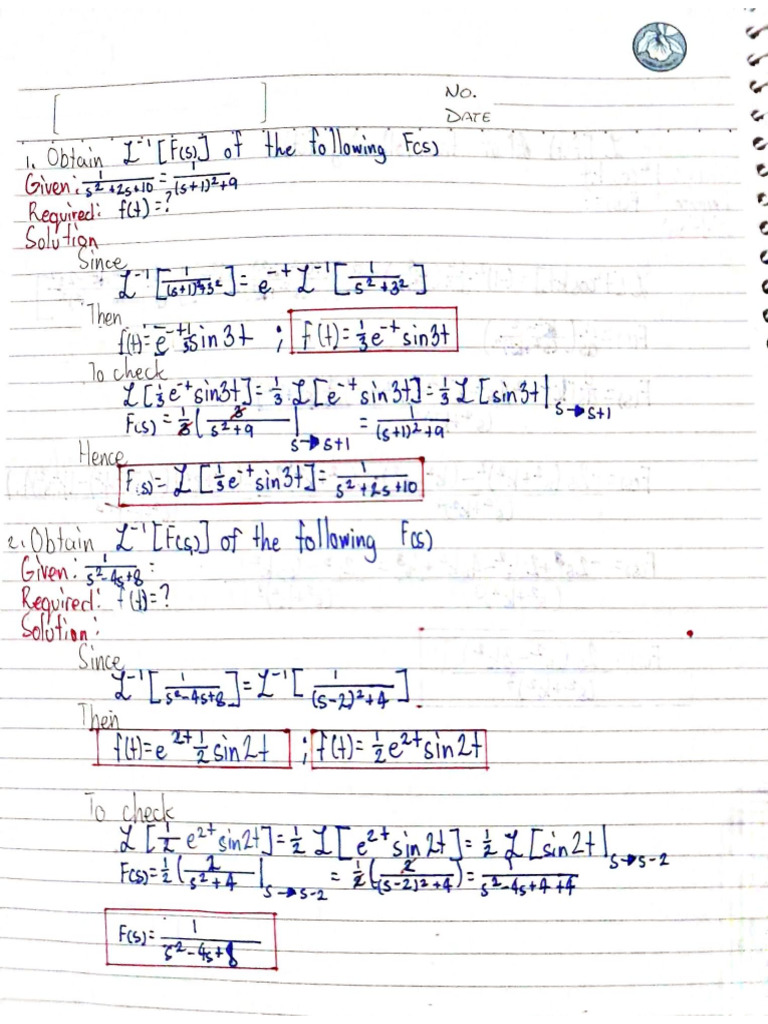 NO.
DATE
1. Obtain ℒ⁻¹[F(s)] of the following F(s)
Given: 1/(s²+2s+10) = 1/((s+1)²+9)
Required: f(t)=?
Solution
Since
ℒ⁻¹[1/((s+1)²+3²)] = e⁻ᵗ ℒ⁻¹[1/(s²+3²)]
Then
f(t)=e⁻ᵗ 1/3 sin3t ; f(t)=1/3 e⁻ᵗ sin3t
To check
ℒ[1/3 e⁻ᵗ sin3t] = 1/3 ℒ[e⁻ᵗ sin3t] = 1/3 ℒ[sin3t|s→s+1
F(s)=1/3(3/(s²+9)|s→s+1 = 1/((s+1)²+9)
Hence
F(s)=ℒ[1/3 e⁻ᵗ sin3t]=1/(s²+2s+10)
2. Obtain ℒ⁻¹[F(s)] of the following F(s)
Given: 1/(s²-4s+8) =
Required: f(t)=?
Solution:
Since
ℒ⁻¹[1/(s²-4s+8)] = ℒ⁻¹[1/((s-2)²+4)]
Then
f(t)=e²ᵗ 1/2 sin2t ; f(t)=1/2 e²ᵗ sin2t
To check
ℒ[1/2 e²ᵗ sin2t] = 1/2 ℒ[e²ᵗ sin2t] = 1/2 ℒ[sin2t|s→s-2
F(s)=1/2(2/(s²+4)|s→s-2 = 1/2(2/((s-2)²+4) = 1/(s²-4s+4+4)
F(s)=1/(s²-4s+8)